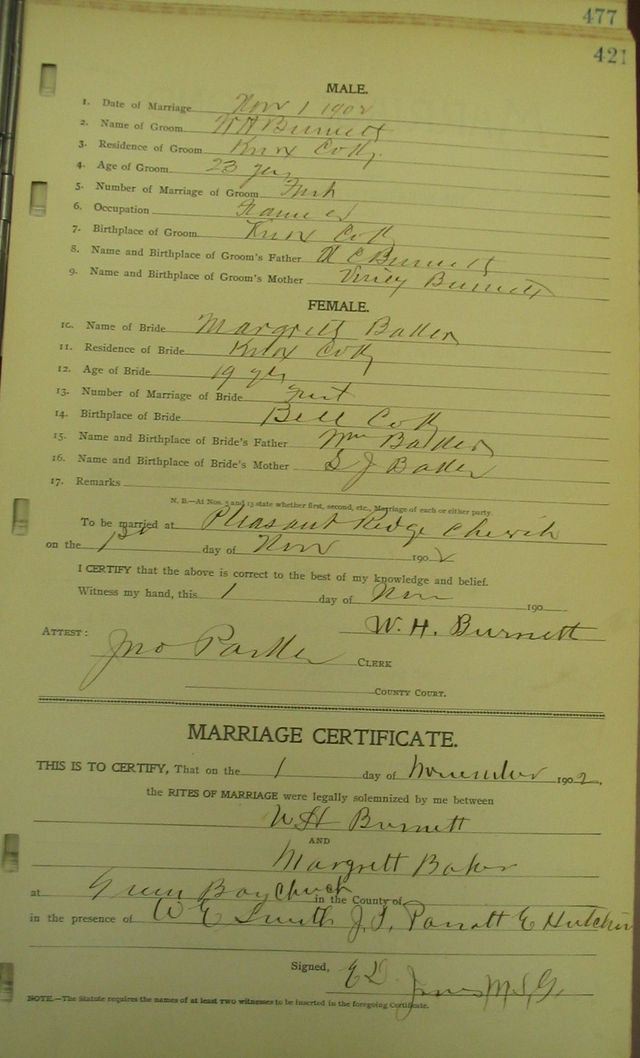 477
421
MALE.
1. Date of Marriage Nov 1 1902
2. Name of Groom W H Burnett
3. Residence of Groom Knox Co Ky.
4. Age of Groom 23 yrs
5. Number of Marriage of Groom First
6. Occupation Farmer
7. Birthplace of Groom Knox Co Ky
8. Name and Birthplace of Groom's Father C Burnett
9. Name and Birthplace of Groom's Mother Burnett
FEMALE.
10. Name of Bride Margrett Baker
11. Residence of Bride Knox Co Ky
12. Age of Bride 19 yrs
13. Number of Marriage of Bride First
14. Birthplace of Bride Bell Co Ky
15. Name and Birthplace of Bride's Father Wm Baker
16. Name and Birthplace of Bride's Mother S J Baker
17. Remarks
N. B.—At Nos. 5 and 13 state whether first, second, etc., Marriage of each or either party.
To be married at Pleasant Ridge Church
on the 1st day of Nov 1902
I CERTIFY that the above is correct to the best of my knowledge and belief.
Witness my hand, this 1 day of Nov 190
W. H. Burnett
ATTEST:
Jno Parker CLERK
COUNTY COURT.
MARRIAGE CERTIFICATE.
THIS IS TO CERTIFY, That on the 1 day of November 1902,
the RITES OF MARRIAGE were legally solemnized by me between
W H Burnett
AND
Margrett Baker
at Green Bay Church in the County of
in the presence of W E Smith J. T. Parrott E Hutchin
Signed, E D. Jones M.S.G.
NOTE.—The Statute requires the names of at least TWO witnesses to be inserted in the foregoing Certificate.